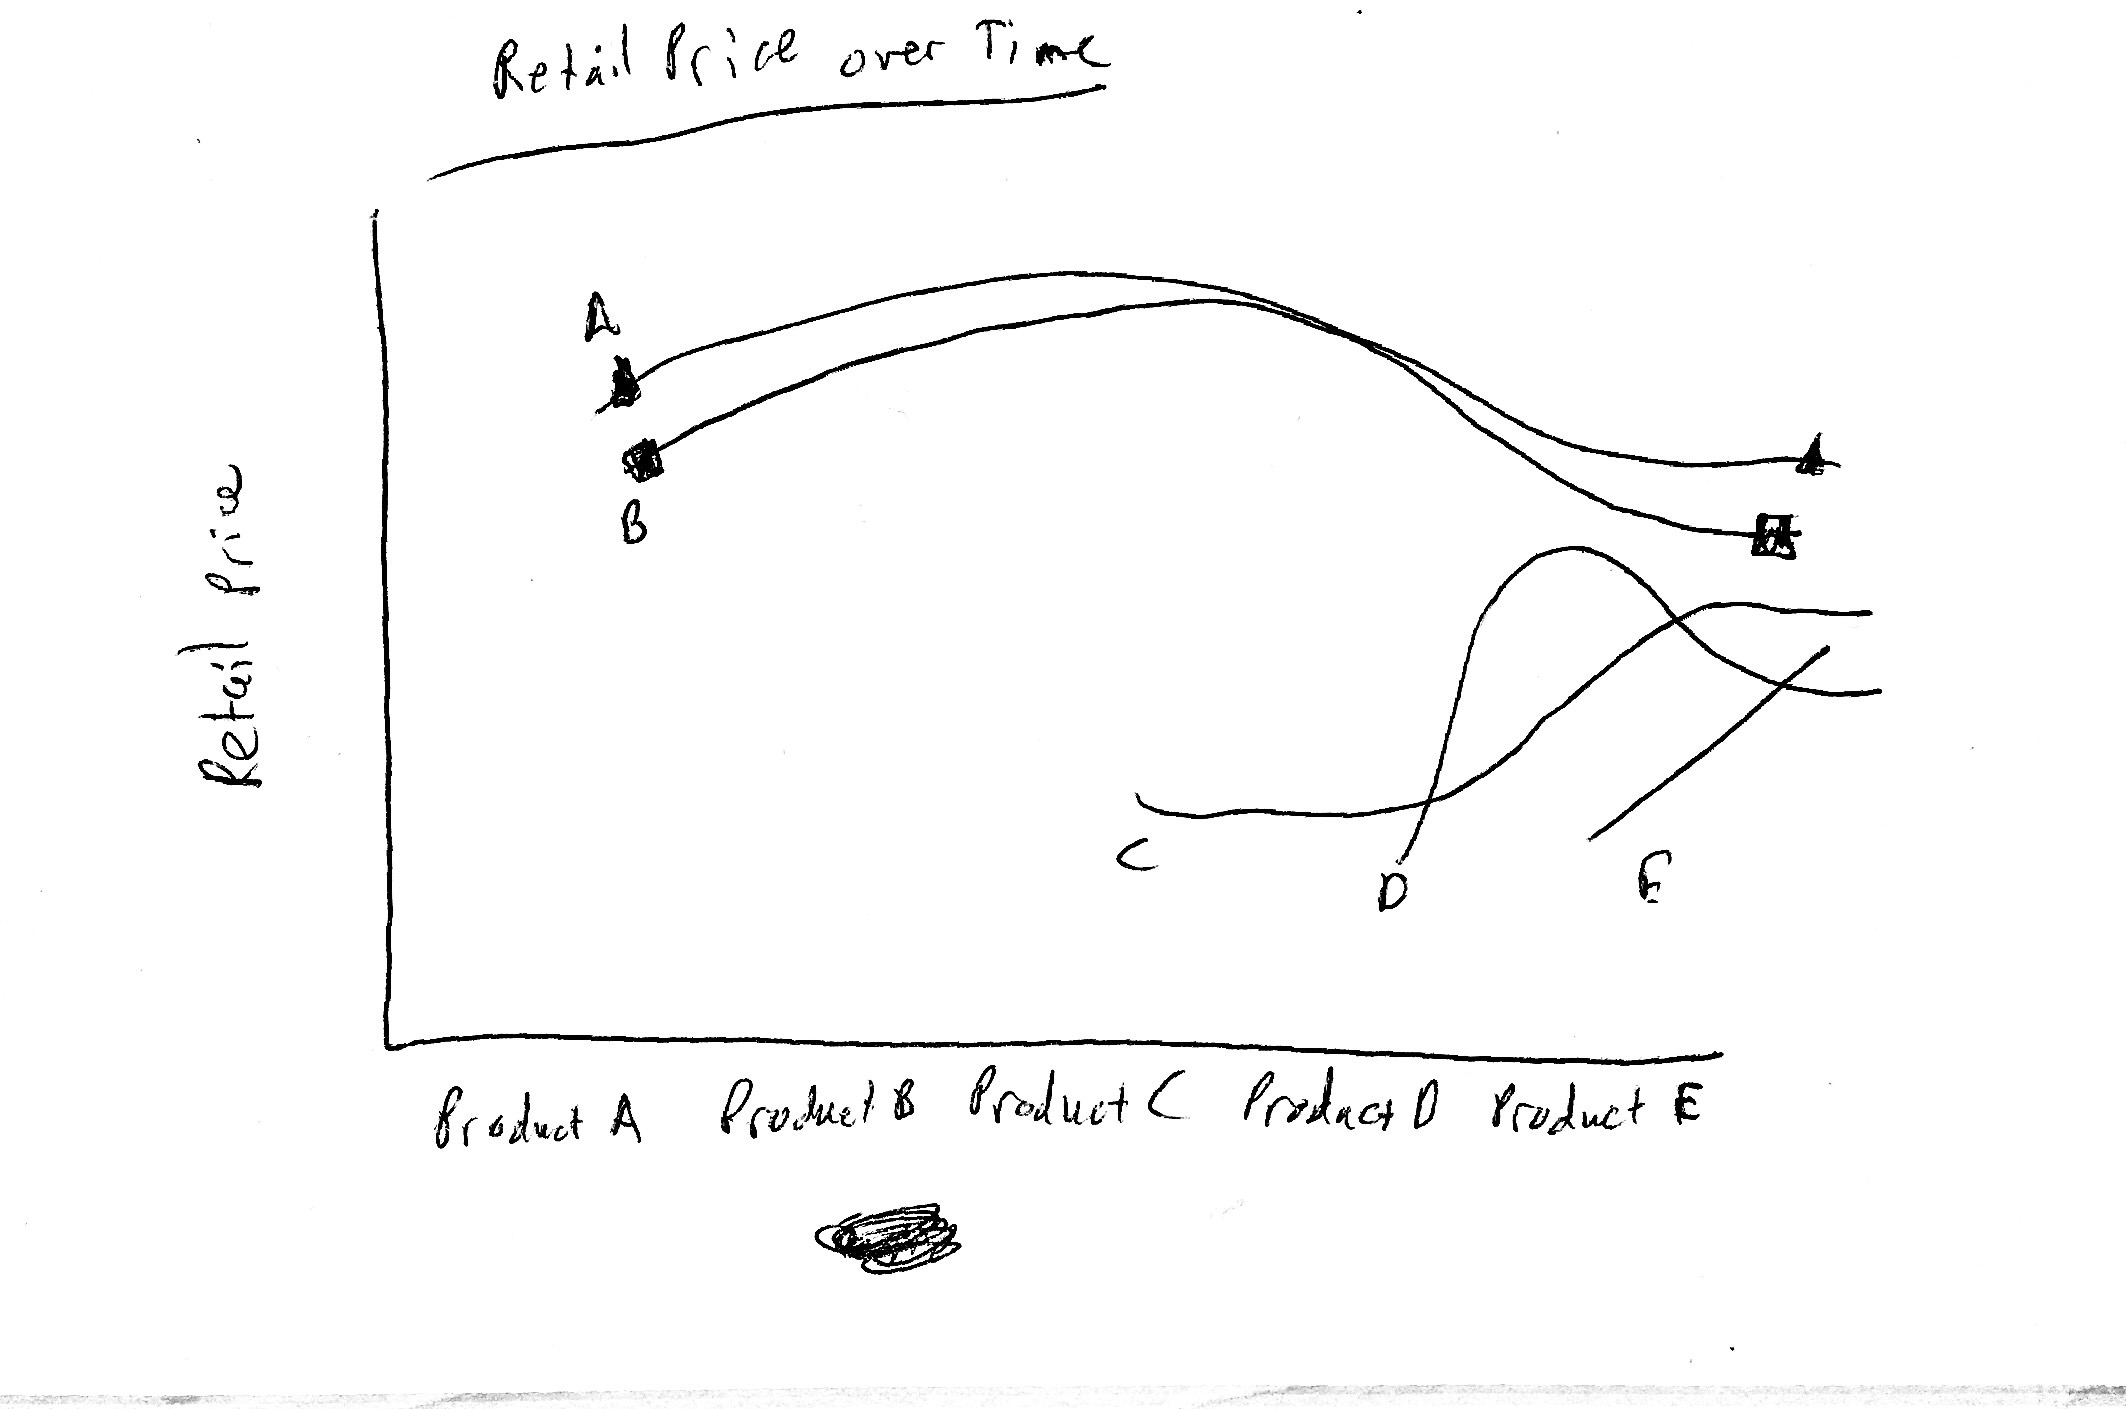 Retail Price over Time
A
B
Retail Price
C
D
E
Product A Product B Product C Product D Product E